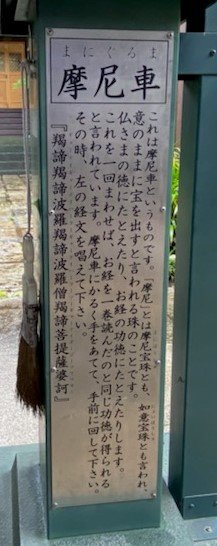 まにぐるま
摩尼車
これは摩尼車というものです。「摩尼」とは摩尼宝珠とも、如意宝珠とも言われ
意のままに宝を出すと言われる珠のことです。
仏さまの徳にたとえたり、お経の功徳にたとえたりします。
これを一回まわせば、お経を一巻読んだのと同じ功徳が得られる
と言われています。摩尼車にかるく手をあてて、手前に回して下さい。
その時、左の経文を唱えて下さい。
『羯諦羯諦波羅羯諦波羅僧羯諦菩提薩婆訶』